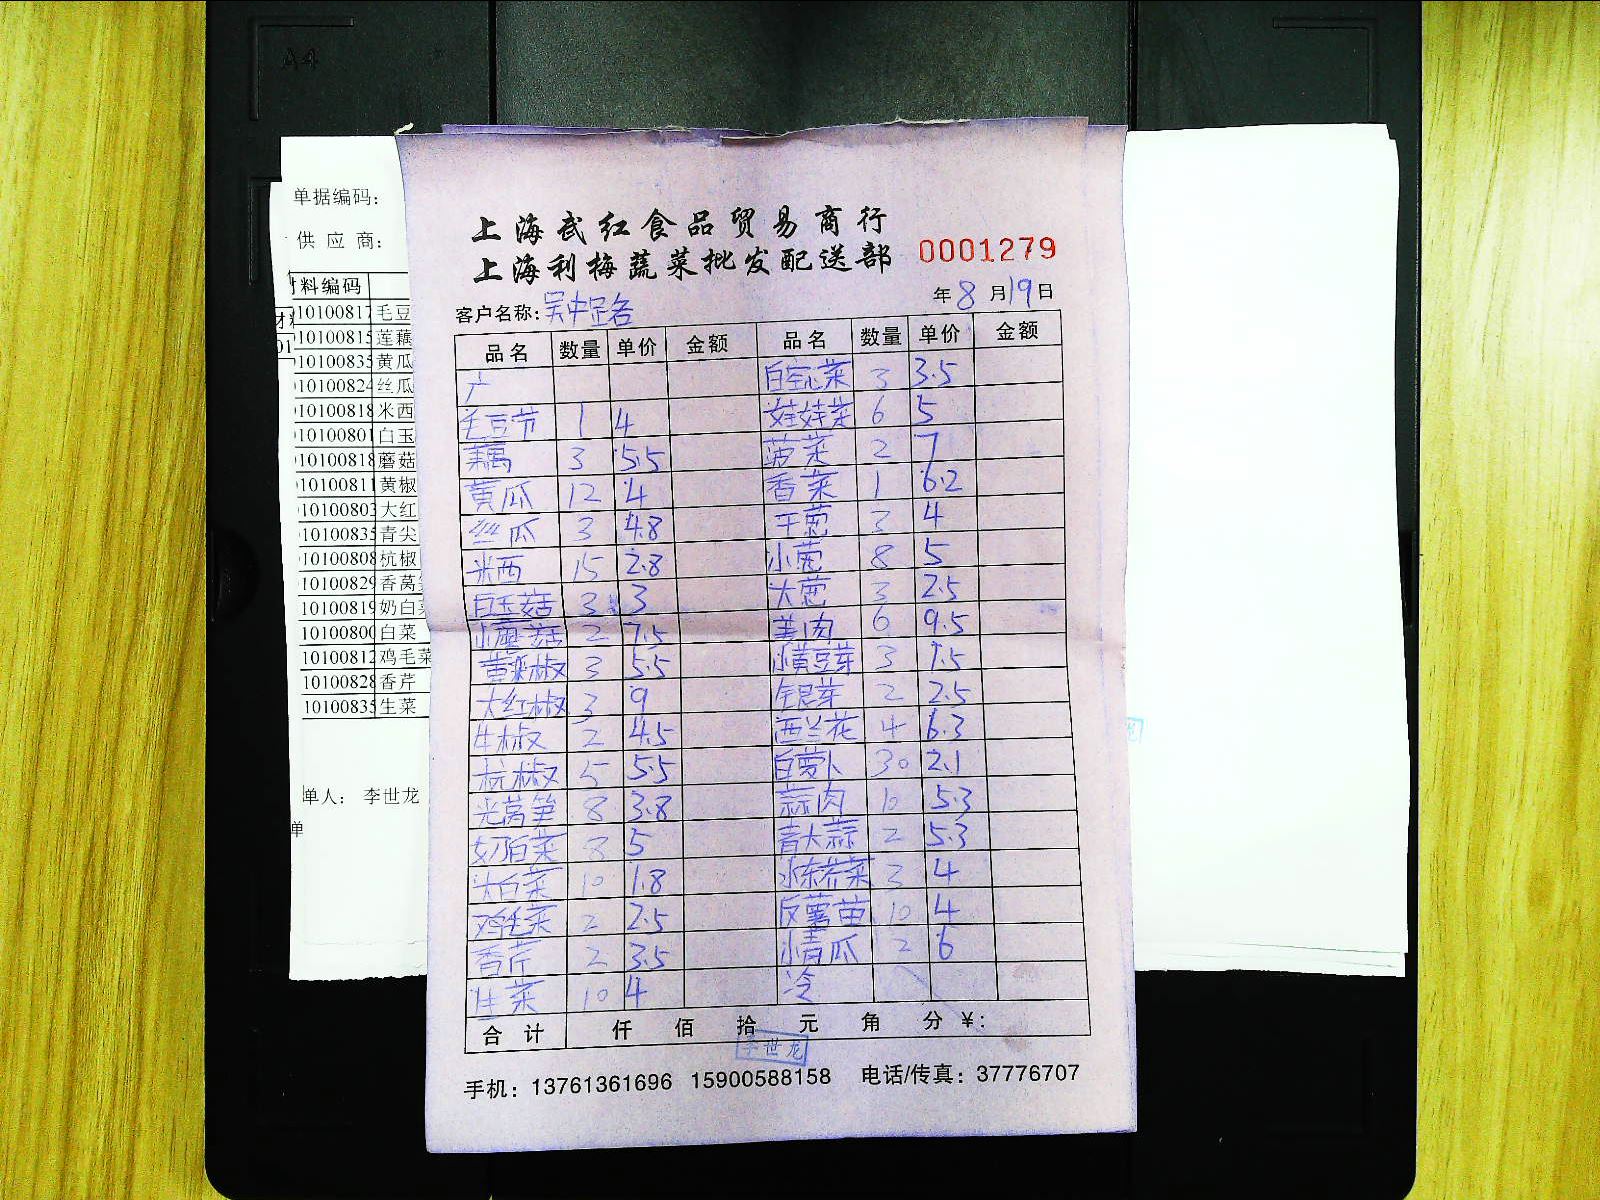 A4
单据编码：
供 应 商：
材料编码
10100817 毛豆
10100815 莲藕
10100835 黄瓜
10100824 丝瓜
10100818 米西
10100801 白玉
10100818 蘑菇
10100811 黄椒
10100803 大红
10100835 青尖
10100808 杭椒
10100829 香莴
10100819 奶白
10100800 白菜
10100812 鸡毛菜
10100828 香芹
10100835 生菜
单人： 李世龙
单
上海武红食品贸易商行
上海利梅蔬菜批发配送部 0001279
年 8 月 19 日
客户名称：吴中路
品名 数量 单价 金额 品名 数量 单价 金额
白空心菜 3 3.5
毛豆节 1 4 娃娃菜 6 5
藕 3 5.5 菠菜 2 7
黄瓜 12 4 香菜 1 6.2
丝瓜 3 4.8 干葱 3 4
米西 15 2.8 小葱 8 5
白玉菇 3 3 大葱 3 2.5
小蘑菇 2 7.5 姜肉 6 9.5
黄彩椒 3 5.5 小黄豆芽 3 1.5
大红椒 3 9 银芽 2 2.5
牛椒 2 4.5 西兰花 4 6.3
杭椒 5 5.5 白萝卜 30 2.1
光莴笋 8 3.8 蒜肉 10 5.3
奶白菜 3 5 青大蒜 2 5.3
大白菜 10 1.8 水东芥菜 3 4
鸡毛菜 2 2.5 反薯苗 10 4
香芹 2 3.5 小青瓜 2 6
生菜 10 4 冷
合 计 仟 佰 拾 元 角 分 ¥：
李世龙
手机：13761361696 15900588158 电话/传真：37776707